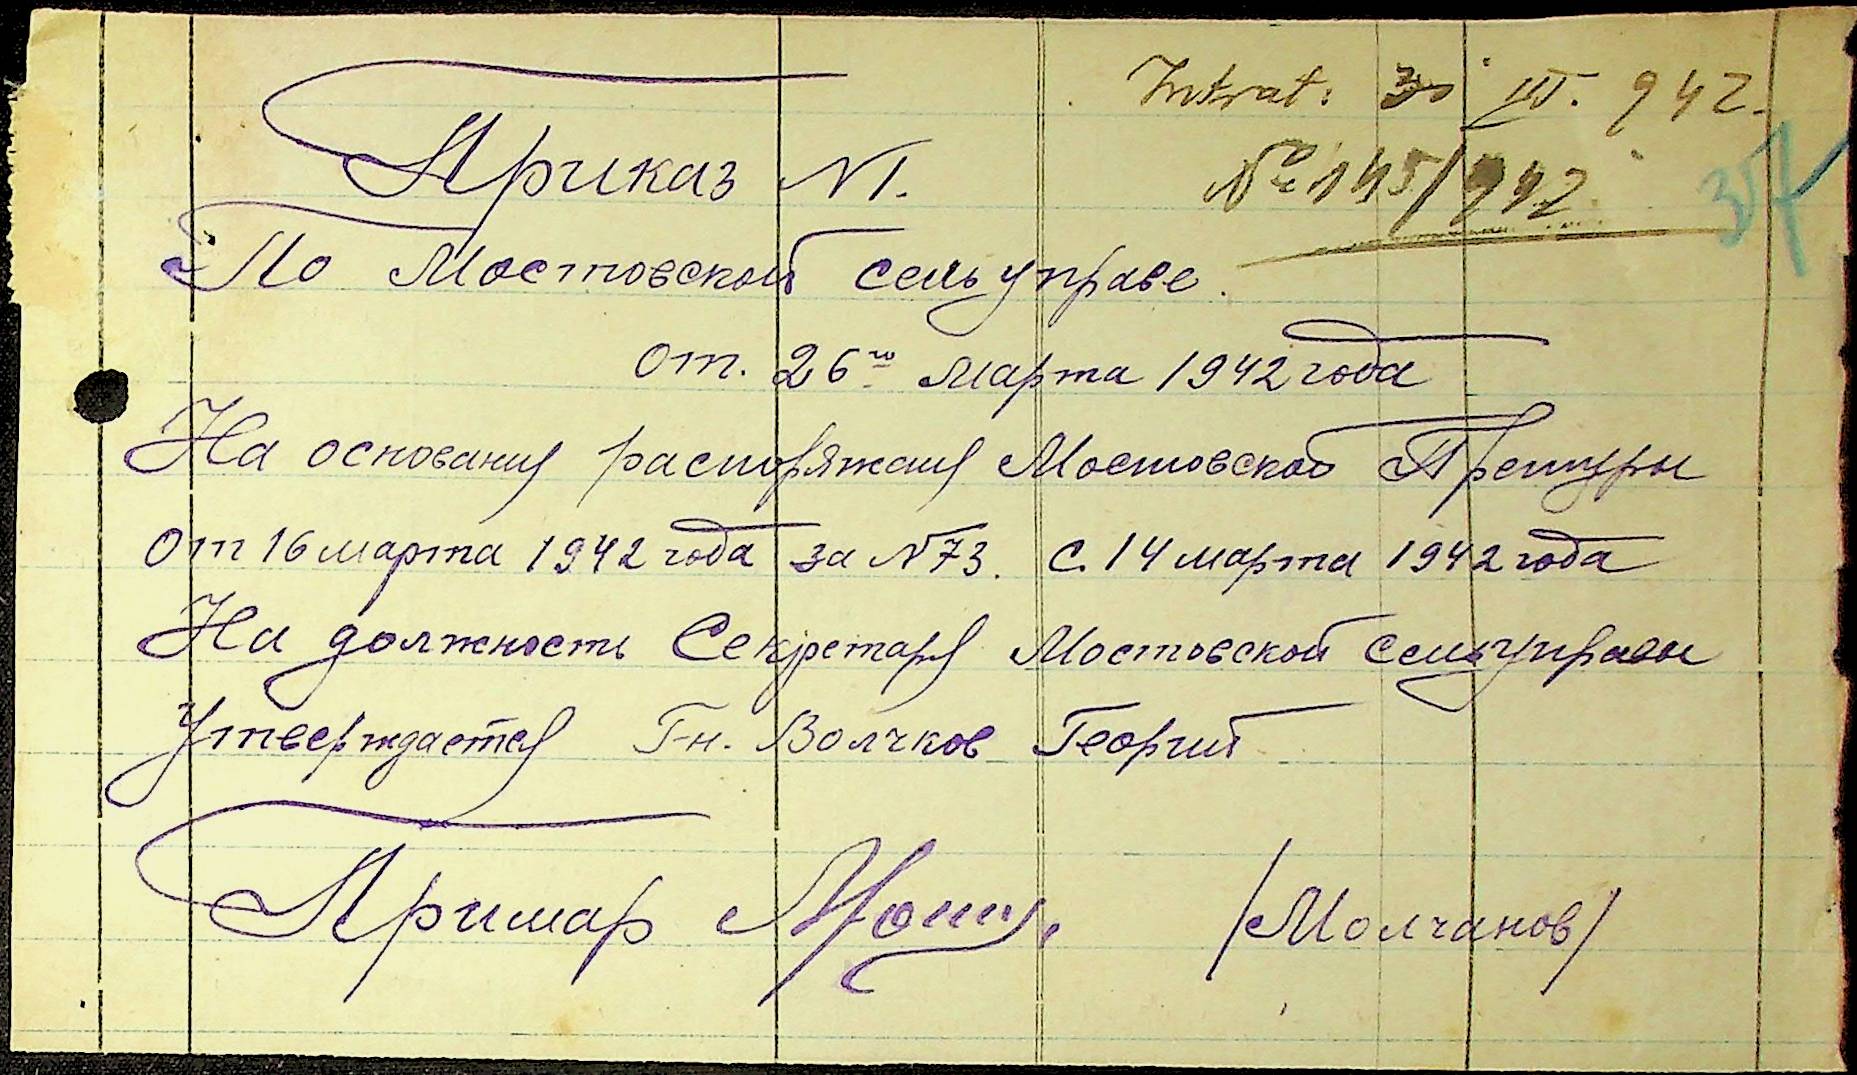 Intrat: 30 III. 942.
№ 145/942
37
Приказ N1.
По Мостовской сельуправе.
От. 26го марта 1942 года
На основания распоряжения Мостовской Претуры
от 16 марта 1942 года за N73. С. 14 марта 1942 года
На должность Секретаря Мостовской сельуправы
Утверждается Г-н. Волчков Георгий
Примар
/Молчанов/